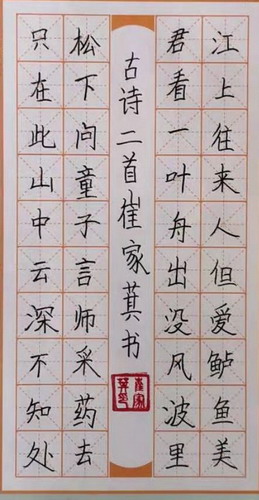 江上往来人但爱鲈鱼美
君看一叶舟出没风波里
古诗二首崔家萁书
松下问童子言师采药去
只在此山中云深不知处